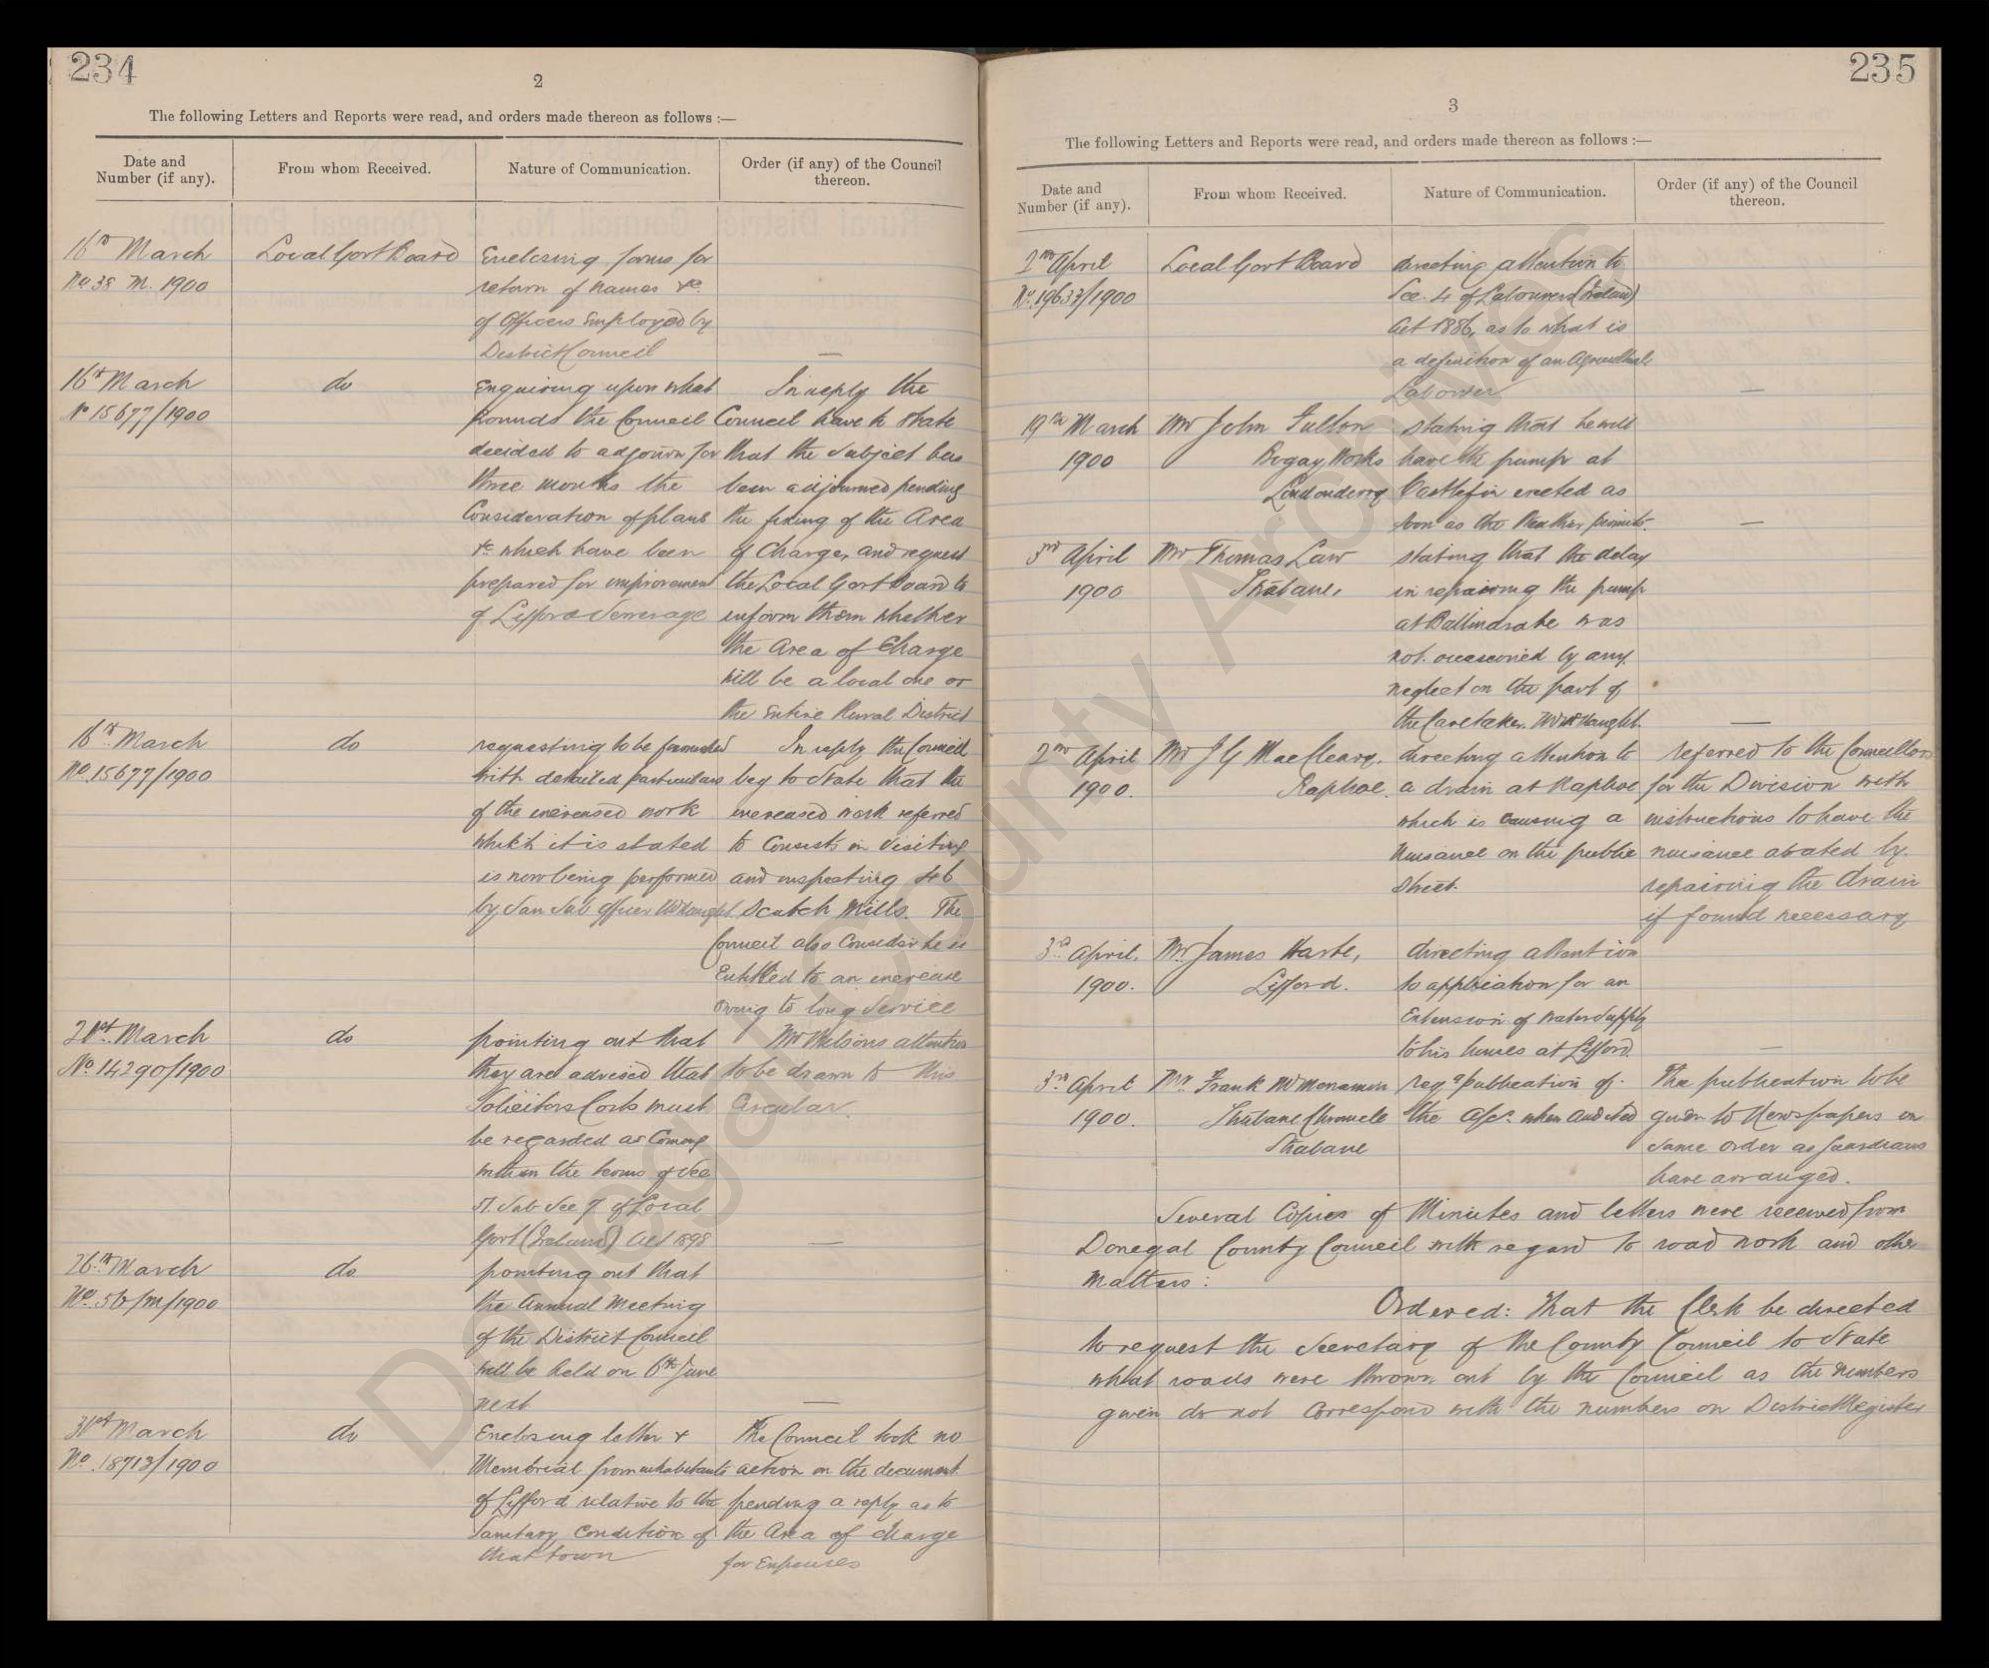 234
2
The following Letters and Reports were read, and orders made thereon as follows :—
Date and Number (if any).
From whom Received.
Nature of Communication.
Order (if any) of the Council thereon.
16th March
No 38 M. 1900
Local Govt Board
Enclosing forms for
return of names &c.
of Officers Employed by
District Council
—
16th March
No 15677/1900
do
Enquiring upon what
grounds the Council
decided to adjourn for
three months the
Consideration of plans
&c which have been
prepared for improvement
of Lifford Sewerage
In reply the
Council have to state
that the subject has
been adjourned pending
the fixing of the Area
of Charge, and request
the Local Govt Board to
inform them whether
the Area of Charge
will be a local one or
the Entire Rural District
16th March
No. 15677/1900
do
requesting to be furnished
with detailed particulars
of the increased work
which it is stated
is now being performed
by San Sub Officer
In reply the Council
beg to state that the
increased work referred
to Consists in visiting
and inspecting
Scutch Mills. The
Council also Consider he is
Entitled to an increase
owing to long service
21st March
No. 14290/1900
do
pointing out that
they are advised that
Solicitors Costs must
be regarded as Coming
within the terms of Sec
Sub Sec 7 of Local
Govt (Ireland) Act 1898
Mr Wilsons attention
to be drawn to this
Circular.
—
26th March
No. 56/M/1900
do
pointing out that
the Annual Meeting
of the District Council
will be held on 6th June
next
—
31st March
No. 18713/1900
do
Enclosing letter &
Memorial from inhabitants
of Lifford relative to the
Sanitary Condition of
that town
The Council took no
action on the document
pending a reply as to
the Area of charge
for Expenses
235
3
The following Letters and Reports were read, and orders made thereon as follows :—
Date and Number (if any).
From whom Received.
Nature of Communication.
Order (if any) of the Council thereon.
2nd April
No. 19633/1900
Local Govt Board
directing attention to
Sec. 4 of Labourers (Ireland)
Act 1886, as to what is
a definition of an Agricultural
Laborer
—
19th March
1900
Mr John Fulton
Bogay Works
Londonderry
stating that he will
have the pump at
Castlefin erected as
soon as the Weather permits.
—
3rd April
1900
Mr Thomas Law
Strabane,
stating that the delay
in repairing the pump
at Ballindrate was
not occasioned by any
neglect on the part of
the Caretaker.
—
2nd April
1900.
Mr J G MacCleary,
Raphoe.
directing attention to
a drain at Raphoe
which is causing a
nuisance on the public
Street.
referred to the Councillors
for the Division with
instructions to have the
nuisance abated by
repairing the drain
if found necessary
3rd April.
1900.
Mr. James Harte,
Lifford.
directing attention
to application for an
Extension of Water Supply
to his houses at Lifford.
—
3rd April
1900.
Mr. Frank McMenamin
Strabane Chronicle
Strabane
publication of
the when audited
The publication to be
given to Newspapers in
same order as Guardians
have arranged.
Several Copies of Minutes and letters were received from
Donegal County Council with regard to road work and other
matters:
Ordered: That the Clerk be directed
to request the Secretary of the County Council to state
what roads were thrown out by the Council as the numbers
given do not Correspond with the numbers on District Register
Donegal County Archives